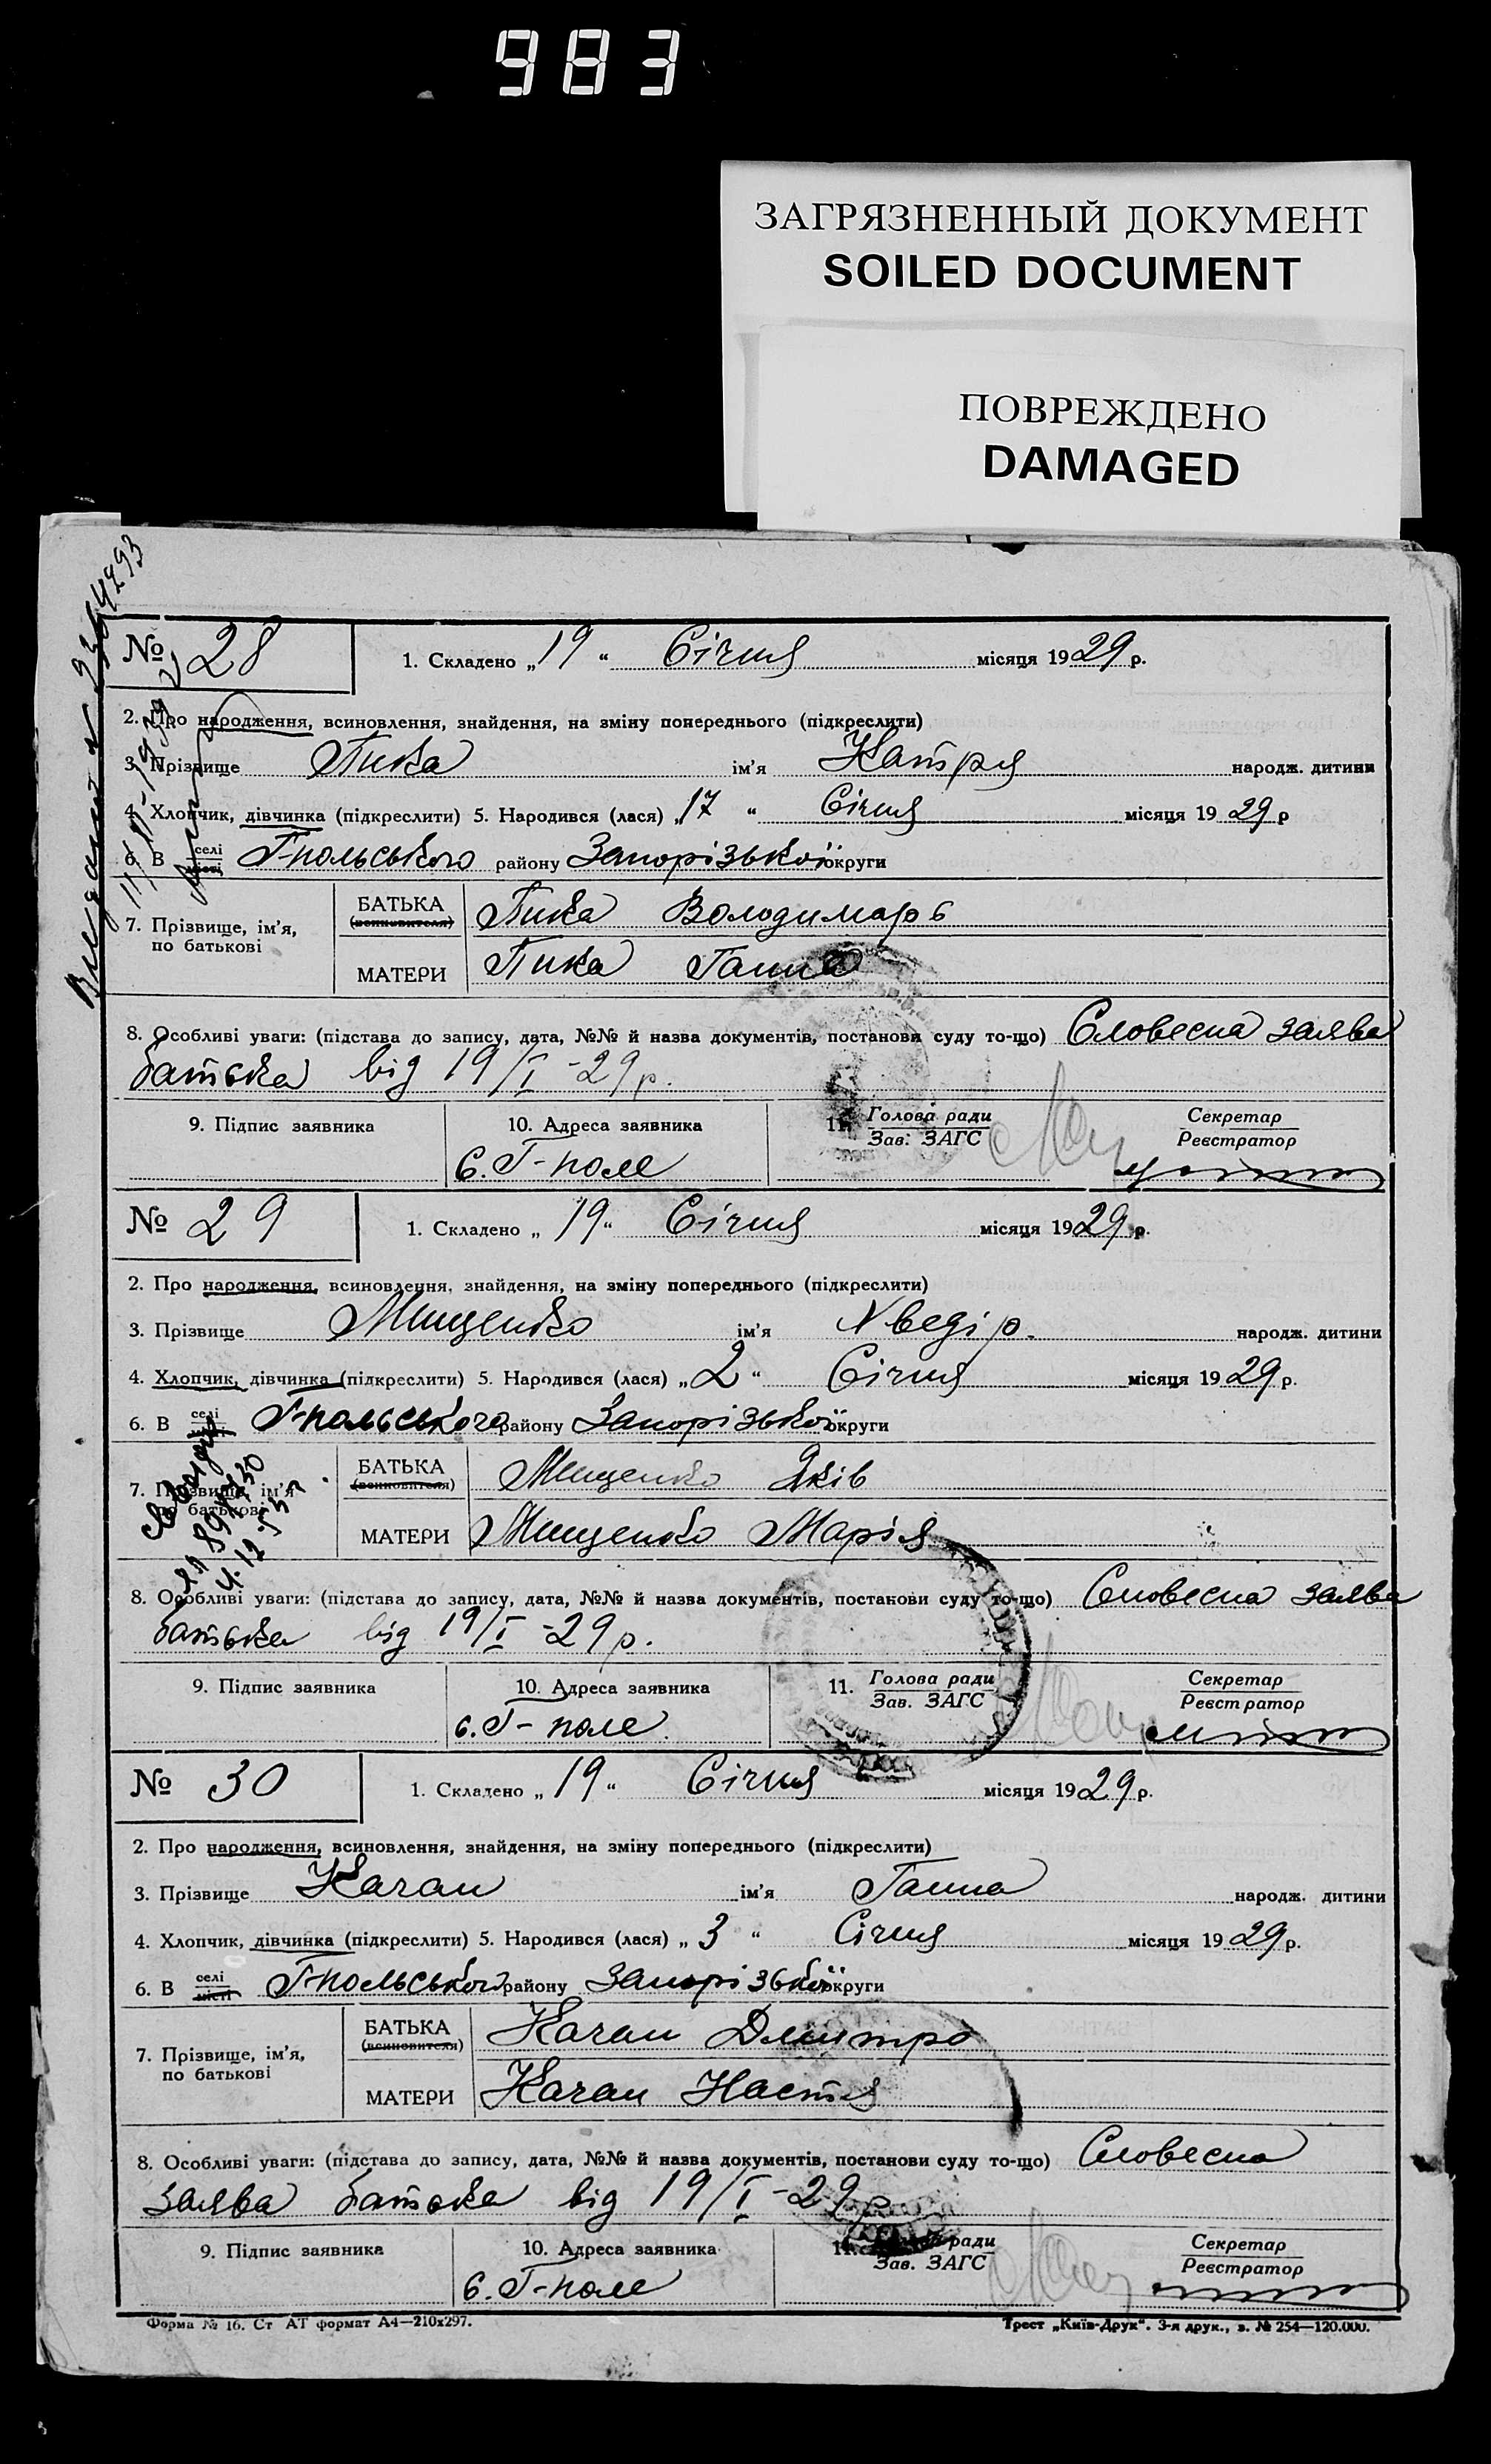 983
ЗАГРЯЗНЕННЫЙ ДОКУМЕНТ
SOILED DOCUMENT
ПОВРЕЖДЕНО
DAMAGED
№ 28 1. Складено „19“ Січня місяця 1929 р.
2. Про народження, всиновлення, знайдення, на зміну попереднього (підкреслити)
3. Прізвище Пика ім'я Катря народж. дитини
4. Хлопчик, дівчинка (підкреслити) 5. Народився (лася) „17“ Січня місяця 1929 р
6. В селі місті Г-польського району Запорізької округи
7. Прізвище, ім'я, по батькові
БАТЬКА (всиновителя) Пика Володимарь
МАТЕРИ Пика Ганна
8. Особливі уваги: (підстава до запису, дата, №№ й назва документів, постанови суду то-що) Словесна заява
батька від 19/I-29 р.
9. Підпис заявника 10. Адреса заявника 11. Голова ради Зав. ЗАГС Секретар Реєстратор
с. Г-поле
№ 29 1. Складено „19“ Січня місяця 1929 р.
2. Про народження, всиновлення, знайдення, на зміну попереднього (підкреслити)
3. Прізвище Мищенко ім'я народж. дитини
4. Хлопчик, дівчинка (підкреслити) 5. Народився (лася) „2“ Січня місяця 1929 р.
6. В селі Г-польського району Запорізької округи
7. Прізвище, ім'я, по батькові
БАТЬКА (всиновителя) Мищенко Яків
МАТЕРИ Мищенко Марія
8. Особливі уваги: (підстава до запису, дата, №№ й назва документів, постанови суду то-що) Словесна заява
батька від 19/I-29 р.
9. Підпис заявника 10. Адреса заявника 11. Голова ради Зав. ЗАГС Секретар Реєстратор
с. Г-поле.
№ 30 1. Складено „19“ Січня місяця 1929 р.
2. Про народження, всиновлення, знайдення, на зміну попереднього (підкреслити)
3. Прізвище Качан ім'я Ганна народж. дитини
4. Хлопчик, дівчинка (підкреслити) 5. Народився (лася) „3“ Січня місяця 1929 р.
6. В селі місті Г-польського району Запорізької округи
7. Прізвище, ім'я, по батькові
БАТЬКА (всиновителя) Качан Дмитро
МАТЕРИ Качан Настя
8. Особливі уваги: (підстава до запису, дата, №№ й назва документів, постанови суду то-що) Словесна
заява батька від 19/I-29
9. Підпис заявника 10. Адреса заявника 11. Голова ради Зав. ЗАГС Секретар Реєстратор
с. Г-поле
Форма № 16. Ст АТ формат А4—210х297. Трест „Київ-Друк“. 3-я друк., з. № 254—120.000.